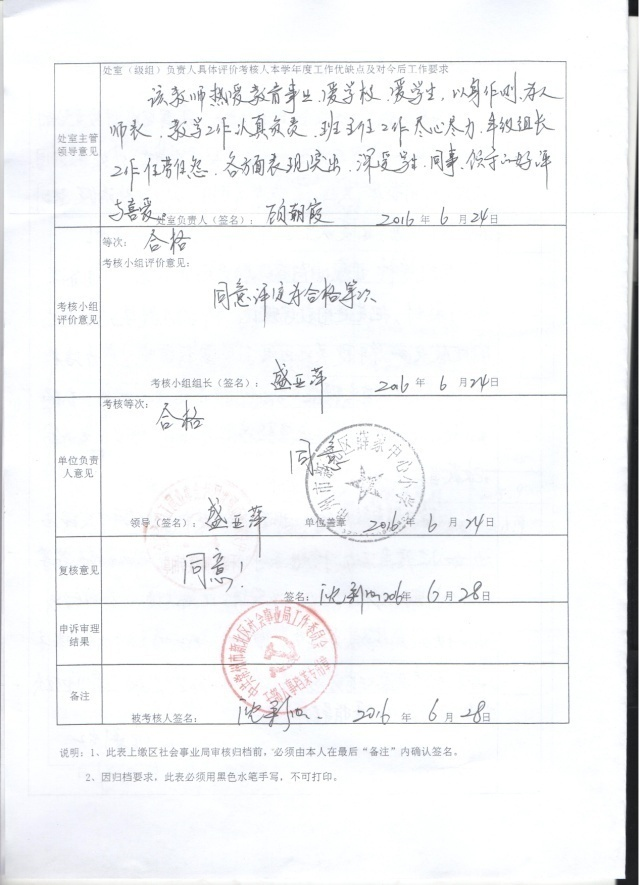 处室（级组）负责人具体评价考核人本学年度工作优缺点及对今后工作要求
处室主管
领导意见
该教师热爱教育事业、爱学校、爱学生，以身作则，为人
师表，教学工作认真负责，班主任工作尽心尽力，年级组长
工作任劳任怨，各方面表现突出，深受学生、同事、领导的好评
与喜爱。
处室负责人（签名）： 顾朝霞 2016 年 6 月 24 日
考核小组
评价意见
等次： 合格
考核小组评价意见：
同意评定为合格等次
考核小组组长（签名）： 盛亚萍 2016 年 6 月 24 日
单位负责
人意见
考核等次：
合格
同意
常州市新北区薛家中心小学
领导（签名）： 盛亚萍 单位盖章 2016 年 6 月 24 日
复核意见
同意！
签名： 2016 年 6 月 28 日
申诉审理
结果
中共常州市新北区社会事业局工作委员会
备注
被考核人签名： 2016 年 6 月 28 日
说明：1、此表上缴区社会事业局审核归档前，必须由本人在最后“备注”内确认签名。
2、因归档要求，此表必须用黑色水笔手写，不可打印。